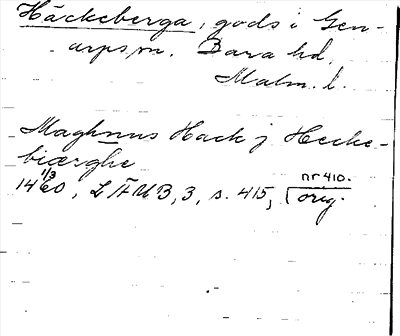 Häckeberga, gods i Gen-
arps sn. Bara hd,
Malm. l.
Maghnus Hack j Hecke-
biærghe
1460 1/3, LÄUB, 3, s. 415, nr 410. orig.